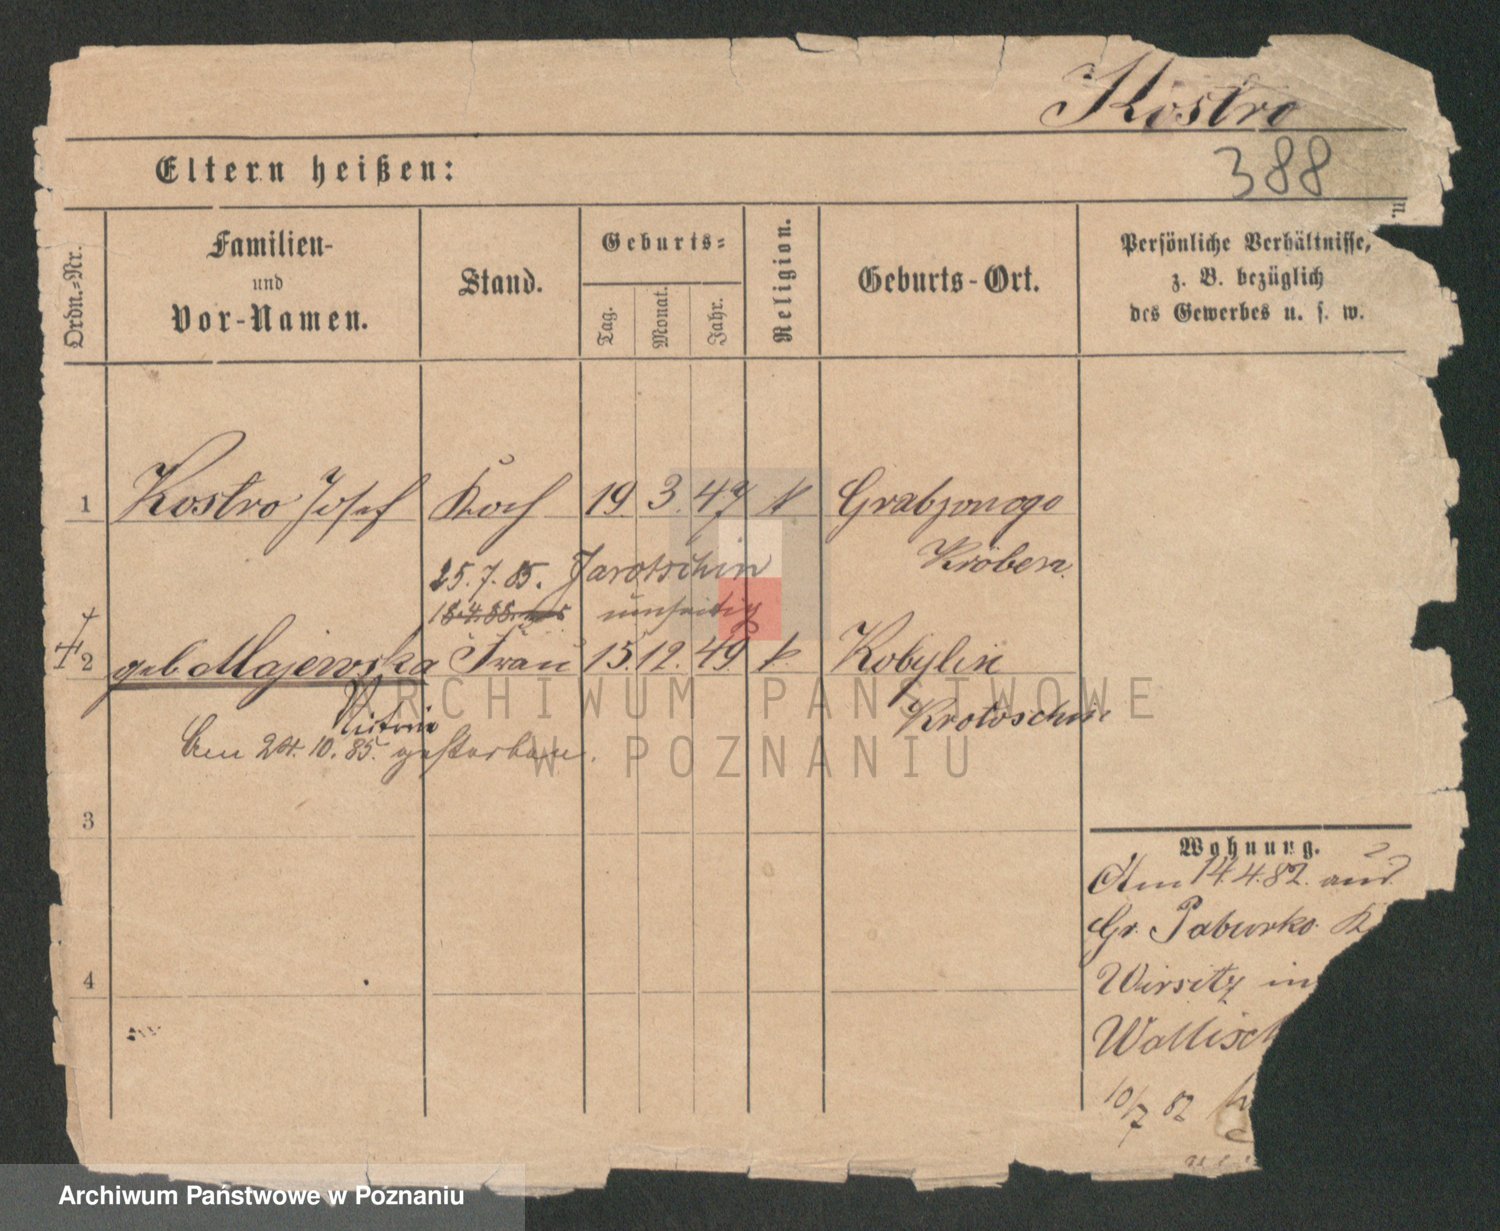 Kostro
388
Eltern heißen:
Ordn.-Nr.
Familien-
und
Vor-Namen.
Stand.
Geburts-
Tag.
Monat.
Jahr.
Religion.
Geburts-Ort.
Persönliche Verhältnisse,
z. B. bezüglich
des Gewerbes u. s. w.
n.
1 Kostro Josef Koch 19. 3. 47 k Grabonogo
Kröben.
25.7.85. Jarotschin
18.4.88. umseitig
2 geb Majewska Frau 15. 12. 49 k. Kobylin
Victoria Krotoschin
Am 24.10.85. gestorben.
3
4
Wohnung.
Am 14.4.82. aus
Gr. Paburko. K
Wirsitz in
Wallisch
10/7 82
ARCHIWUM PAŃSTWOWE
W POZNANIU
Archiwum Państwowe w Poznaniu